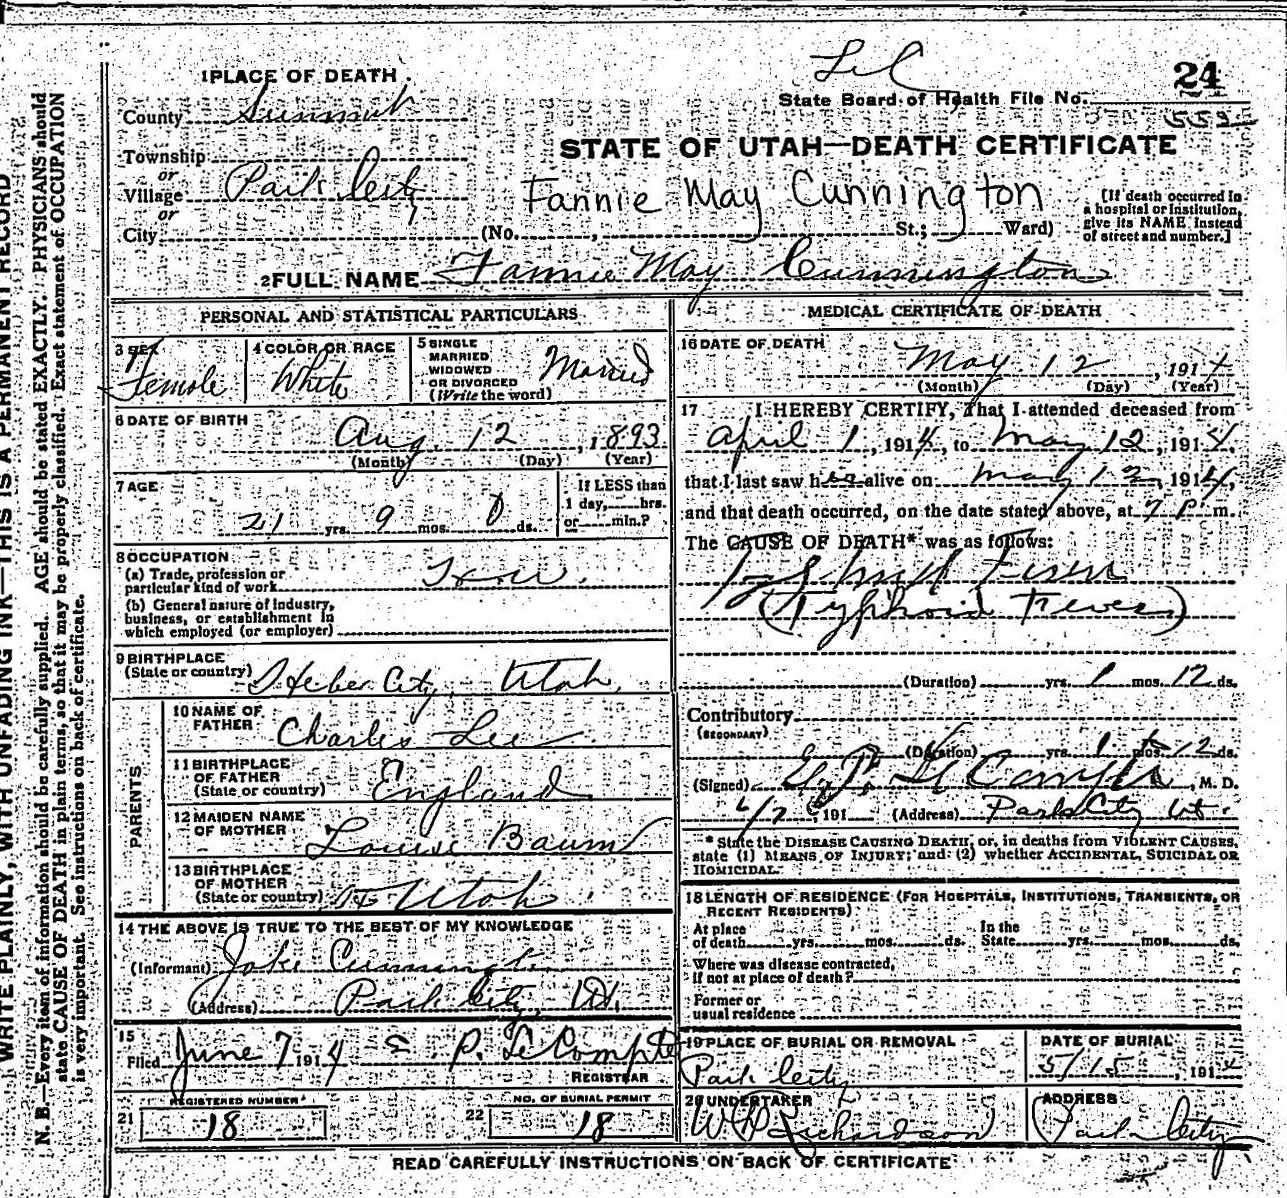 WRITE PLAINLY, WITH UNFADING INK—THIS IS A PERMANENT RECORD
N. B.—Every item of information should be carefully supplied. AGE should be stated EXACTLY. PHYSICIANS should
state CAUSE OF DEATH in plain terms, so that it may be properly classified. Exact statement of OCCUPATION
is very important. See instructions on back of certificate.
1 PLACE OF DEATH.
County Summit
Township
or
Village Park City
or
City (No. , St.; Ward)
24
State Board of Health File No.
STATE OF UTAH—DEATH CERTIFICATE
Fannie May Cunnington
[If death occurred in
a hospital or institution,
give its NAME instead
of street and number.]
2 FULL NAME Fannie May Cunnington
PERSONAL AND STATISTICAL PARTICULARS
3 SEX Female
4 COLOR OR RACE White
5 SINGLE
MARRIED
WIDOWED
OR DIVORCED
(Write the word)
Married
6 DATE OF BIRTH
Aug. 12, 1893
(Month) (Day) (Year)
7 AGE
21 yrs. 9 mos. 0 ds.
If LESS than
1 day, hrs.
or min.?
8 OCCUPATION
(a) Trade, profession or
particular kind of work
(b) General nature of industry,
business, or establishment in
which employed (or employer)
9 BIRTHPLACE
(State or country) Heber City, Utah
PARENTS
10 NAME OF
FATHER Charles Lee
11 BIRTHPLACE
OF FATHER
(State or country) England
12 MAIDEN NAME
OF MOTHER Louise Baum
13 BIRTHPLACE
OF MOTHER
(State or country) Utah
14 THE ABOVE IS TRUE TO THE BEST OF MY KNOWLEDGE
(Informant) Jake Cunnington
(Address) Park City, Ut.
15
Filed June 7 1914 E P. LeCompte
REGISTRAR
REGISTERED NUMBER
21 18
NO. OF BURIAL PERMIT
22 18
MEDICAL CERTIFICATE OF DEATH
16 DATE OF DEATH
May 12, 1914
(Month) (Day) (Year)
17 I HEREBY CERTIFY, That I attended deceased from
April 1, 1914, to May 12, 1914,
that I last saw her alive on May 12, 1914,
and that death occurred, on the date stated above, at 7 P. m.
The CAUSE OF DEATH* was as follows:
Fever
(Typhoid Fever)
(Duration) yrs. 1 mos. 12 ds.
Contributory
(SECONDARY)
(Duration) yrs. 1 mos. 12 ds.
(Signed) E. P. LeCompte, M. D.
191 (Address) Park City Ut.
* State the DISEASE CAUSING DEATH, or, in deaths from VIOLENT CAUSES,
state (1) MEANS OF INJURY; and (2) whether ACCIDENTAL, SUICIDAL OR
HOMICIDAL.
18 LENGTH OF RESIDENCE (FOR HOSPITALS, INSTITUTIONS, TRANSIENTS, OR
RECENT RESIDENTS)
At place
of death yrs. mos. ds.
In the
State yrs. mos. ds.
Where was disease contracted,
if not at place of death?
Former or
usual residence
19 PLACE OF BURIAL OR REMOVAL
Park City
DATE OF BURIAL
5/15, 1914
20 UNDERTAKER
W P Richardson
ADDRESS
Park City
READ CAREFULLY INSTRUCTIONS ON BACK OF CERTIFICATE